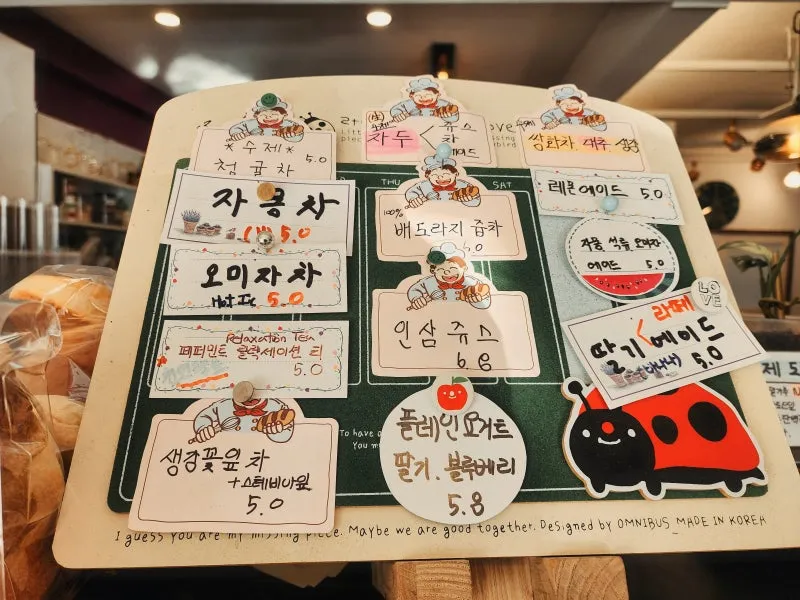 *수제*
청귤차 5.0
자몽차
5.0
오미자차
Hot Ice 5.0
Relaxation Tea
페퍼민트 릴렉세이션 티
5.0
생강꽃잎차
+스테비아잎
5.0
자두 < 쥬스
차
에이드
THU
100%
배도라지 즙차
인삼쥬스
6.8
플레인요거트
딸기.블루베리
5.8
쌍화차, 대추, 생강
SAT
레몬에이드 5.0
자몽 석류 오미자
에이드 5.0
LOVE
라떼
딸기 < 에이드
5.0
I guess you are my missing piece. Maybe we are good together. Designed by OMNIBUS MADE IN KOREA